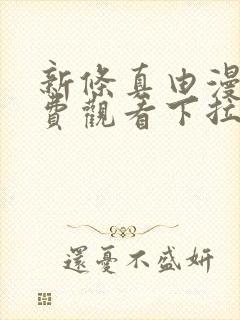 新條真由漫
費觀看下拉
還憂不盛妍